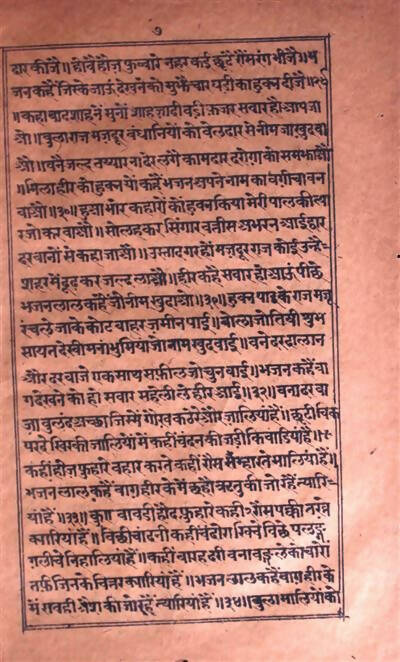 ७
दार कीजै॥ होवै हौज़ फुब्बारे नहर कई छूटैं रौंस रंग भीजै॥ भ
जन कहैं जिस्के जाऊं देखने को मुझै चार घड़ी का हुक्न दीजै॥२९॥
कहा बादशाह नें सुनों शाहज़ादी बड़ी फ़जर सवार हो आप जा
ओ॥ बुला राज मज़दूर बंधानियों को बेलदार सें नीम जा खुदबा
ओ॥ बनै जल्द तय्यार ना देर लगे कामदार दरोग़ा को समझाओ
॥मिला हीर को हुक्न यों कहैं भजन अपने नाम का बग़ीचा बन
वाओ॥३०॥ हुआ भोर कहारों को हुक्न किया मेरी पालकी त्या
र जो करवाओ॥ सोलह कर सिंगार बत्तीस अभरन आई द्वार
दरबानों से कहा जाओ॥ उस्ताद गरहों मज़दूर राज कोई उन्हें
शहर में ढूढ़ कर जल्द लाओ॥ हीर कहै सवार हो आऊं पीछे
भजनलाल कहैं जी नीम खुदाओ॥३१॥ हुक्न पाके राज मज़
दूर चले जाके कोट बाहर ज़मीन पाई॥ बोला जोतिषी शुभ
सायन देखी भूमि या जो नाम खुदवाई॥ बने दर दालान
और दरवाजे एक साथ मर्फ़ाल जो चुनवाई॥ भजन कहैं बा
ग देखने को हो सवार महेली ले हीर आई॥३२॥ बना दरवा
जा बुलंद अच्छा जिस्में गोख कठरे और जालियां हैं॥ छुटी चिक
परदे खिरकी जालियों में कहीं चंदन की जड़ी किवाडियां हैं॥
कहीं हौज़ फुहारे बहार करते कहीं रौस सम्हारते मालियां हैं॥
भजनलाल कहैं बाग़ हीर के में छहों ऋतु की जोरें हैं त्यारि
यां हैं॥३३॥ कुआ बावड़ी हौद फुहारे कहीं रौस पक्की
क्यारियां हैं॥ बिछी चांदनी कहीं चंदोए खिचे बिछे पलङ्ग
ग़लीचे निहालियां हैं॥ कहीं बारहदरी बना बङ्गले को चारों
तर्फ़ जिनके चित्रकारियां हैं॥ भजनलाल कहैं बाग़ हीर के
में सबही ऐश की जोरें हैं त्यारियां हैं॥३४॥ बुला मालियों को